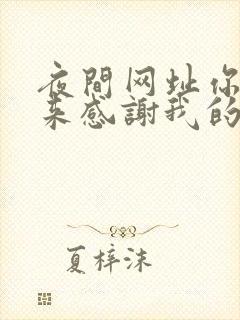 夜間网址你
来感謝我的
夏梓沫